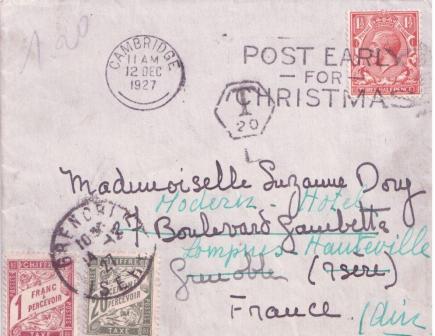 1.20
CAMBRIDGE
11 AM
12 DEC
1927
POST EARLY
— FOR —
CHRISTMA
1½
1½
T
20
Mademoiselle Suzanne Dory
Modern - Hotel
Boulevard Gambetta
Lompnes Hauteville
Grenoble (Isère)
France.
(Ain
GRENOBLE
CHIFFRE
1 FRANC
A PERCEVOIR
TAXE
CHIFFRE
20
PERCEVOIR
TAXE